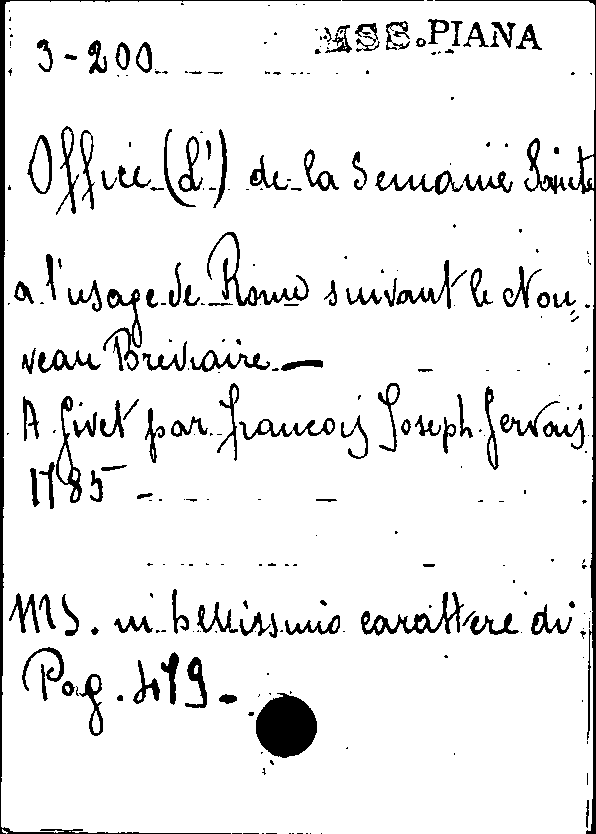 3-200
MSS.PIANA
Office (L') de la Semaine Sainte
a l'usage de Rome suivant le Nou=
veau Breviaire —
A Givet par Francois Joseph Gervais
1785 -
MS. in bellissimo carattere di
Pag. 479 -